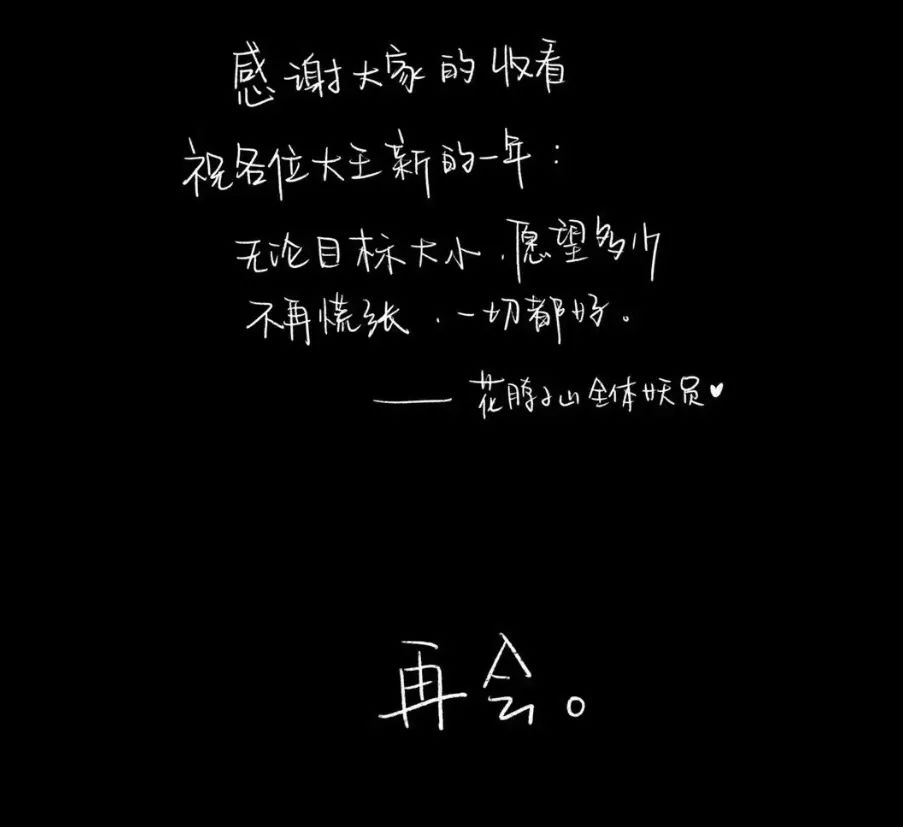 感谢大家的收看
祝各位大王新的一年:
无论目标大小,愿望多少
不再慌张,一切都好。
——花脖子山全体妖员♥
再会。